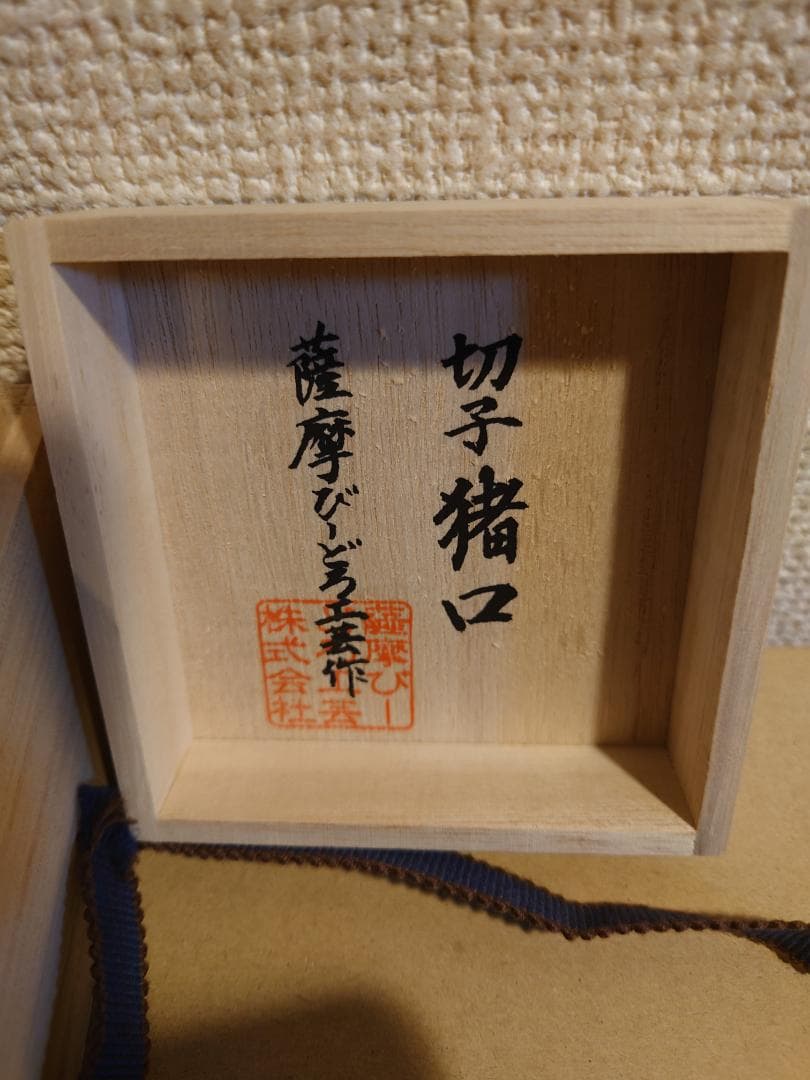 切子猪口
薩摩びーどろ工芸作
薩摩びー
工芸
株式会社